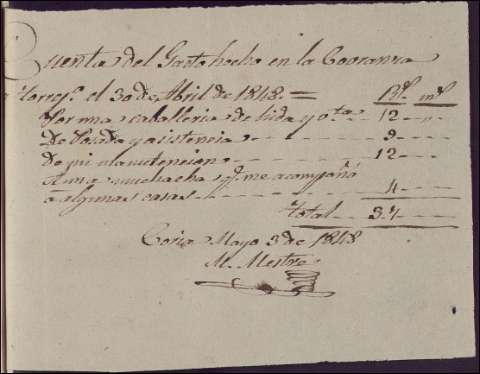 Cuenta del Gasto hecho en la Covranza
torres.s el 30 de Abril de 1848 = Rs. ms.
Por una caballeria de hida y vta 12 "
De Posada y asistencia 9
de mi manutencion 12
A una muchacha q.e me acompañó
a algunas casas 4
total 37
Coria Mayo 3 de 1848
M. Mestre